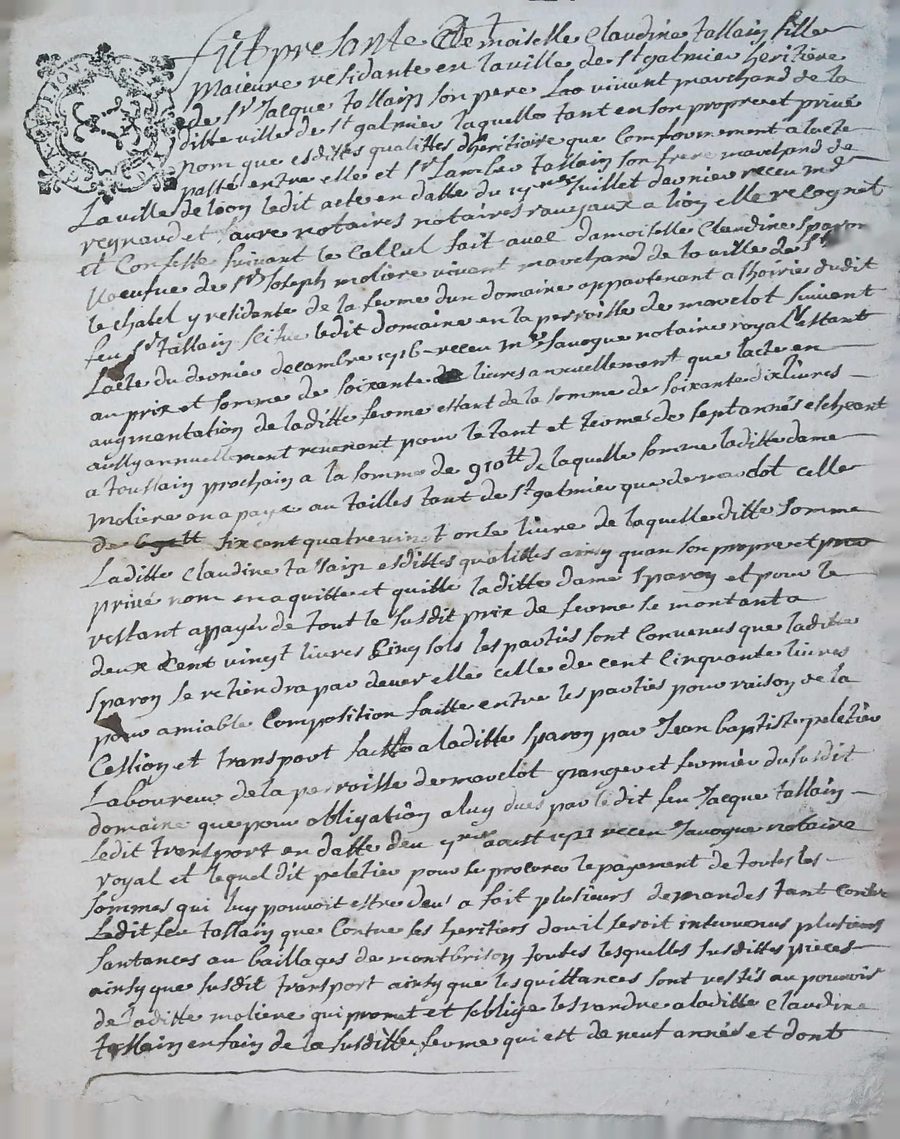 fut presante Demoiselle Claudine tallain fille
maieure residante en la ville de st galmier heritiere
de Sr Jacque tallain son pere Lao vivant marchand de la
ditte ville de st galmier laquelle tant en son propre et privé
nom que esdittes qualittes d'heritiere que Comfourmement a lacte
passé entre elle et Sr Lambert tallain son frere marchand de
La ville de lion ledit acte en datte du Juillet dernier receu md
reynaud et faure notaires notaires royaux a lion elle recognet
et Confesse suivant le Callcul fait avec damoiselle Claudine Sparon
Voeufue de Sr Joseph moliere vivant marchand de la ville de St
le chatel y residante de la ferme dun domaine appartenant a lhoirie dudit
feu Sr tallain scitue ledit domaine en la perroisse de marclot suivent
Lacte du dernier decembre 1716 receu me Javogue notaire royal estant
au prix et somme de soixante livres annuellement que lacte en
augmentation de laditte ferme estant de la somme de soixante dix livres
aussy annuellement revenent pour le tant et terme de sept annés escheant
a toussain prochain a la somme de 910tt de laquelle somme laditte dame
moliere en a paye au tailles tant de st galmier que de marclot celle
de six cent quatre vingt onse livre de laquelle ditte somme
Laditte Claudine tallain esdittes qualittes ainsy quan son propre et
privé nom en a quitté et quitte laditte dame Sparon et pour le
restant a payer de tout le susdit prix de ferme se montant a
deux Cent vingt livres Cinq sols les partiés sont Convenus que laditte
Sparon se retiendra par dever elle celle de cent Cinquante livres
pour amiable Composition faitte entre les parties pour raison de la
Cession et transport faitte a laditte Sparon par Jean baptiste peletier
Laboureur de la perroisse de marclot granger et fermier du susdit
domaine que pour obligation a luy dues par ledit feu Jacque tallain
Ledit transport en datte deu aoust 1721 receu Javogue notaire
royal et lequel dit peletier pour se procurer le payement de toutes les
sommes qui luy pouvoit estre deus a fait plusieurs demandes tant Contre
Ledit feu tallain que Contre ses heritiers dou il seroit intervenus plusieurs
santances au baillages de montbrison toutes lesquelles susdittes pieces
ainsy que susdit transport ainsy que les quittances sont restés au pouvoir
de laditte moliere qui promet et soblige les randre a laditte Claudine
tallain en fain de la susditte ferme qui est de neuf annés et dont